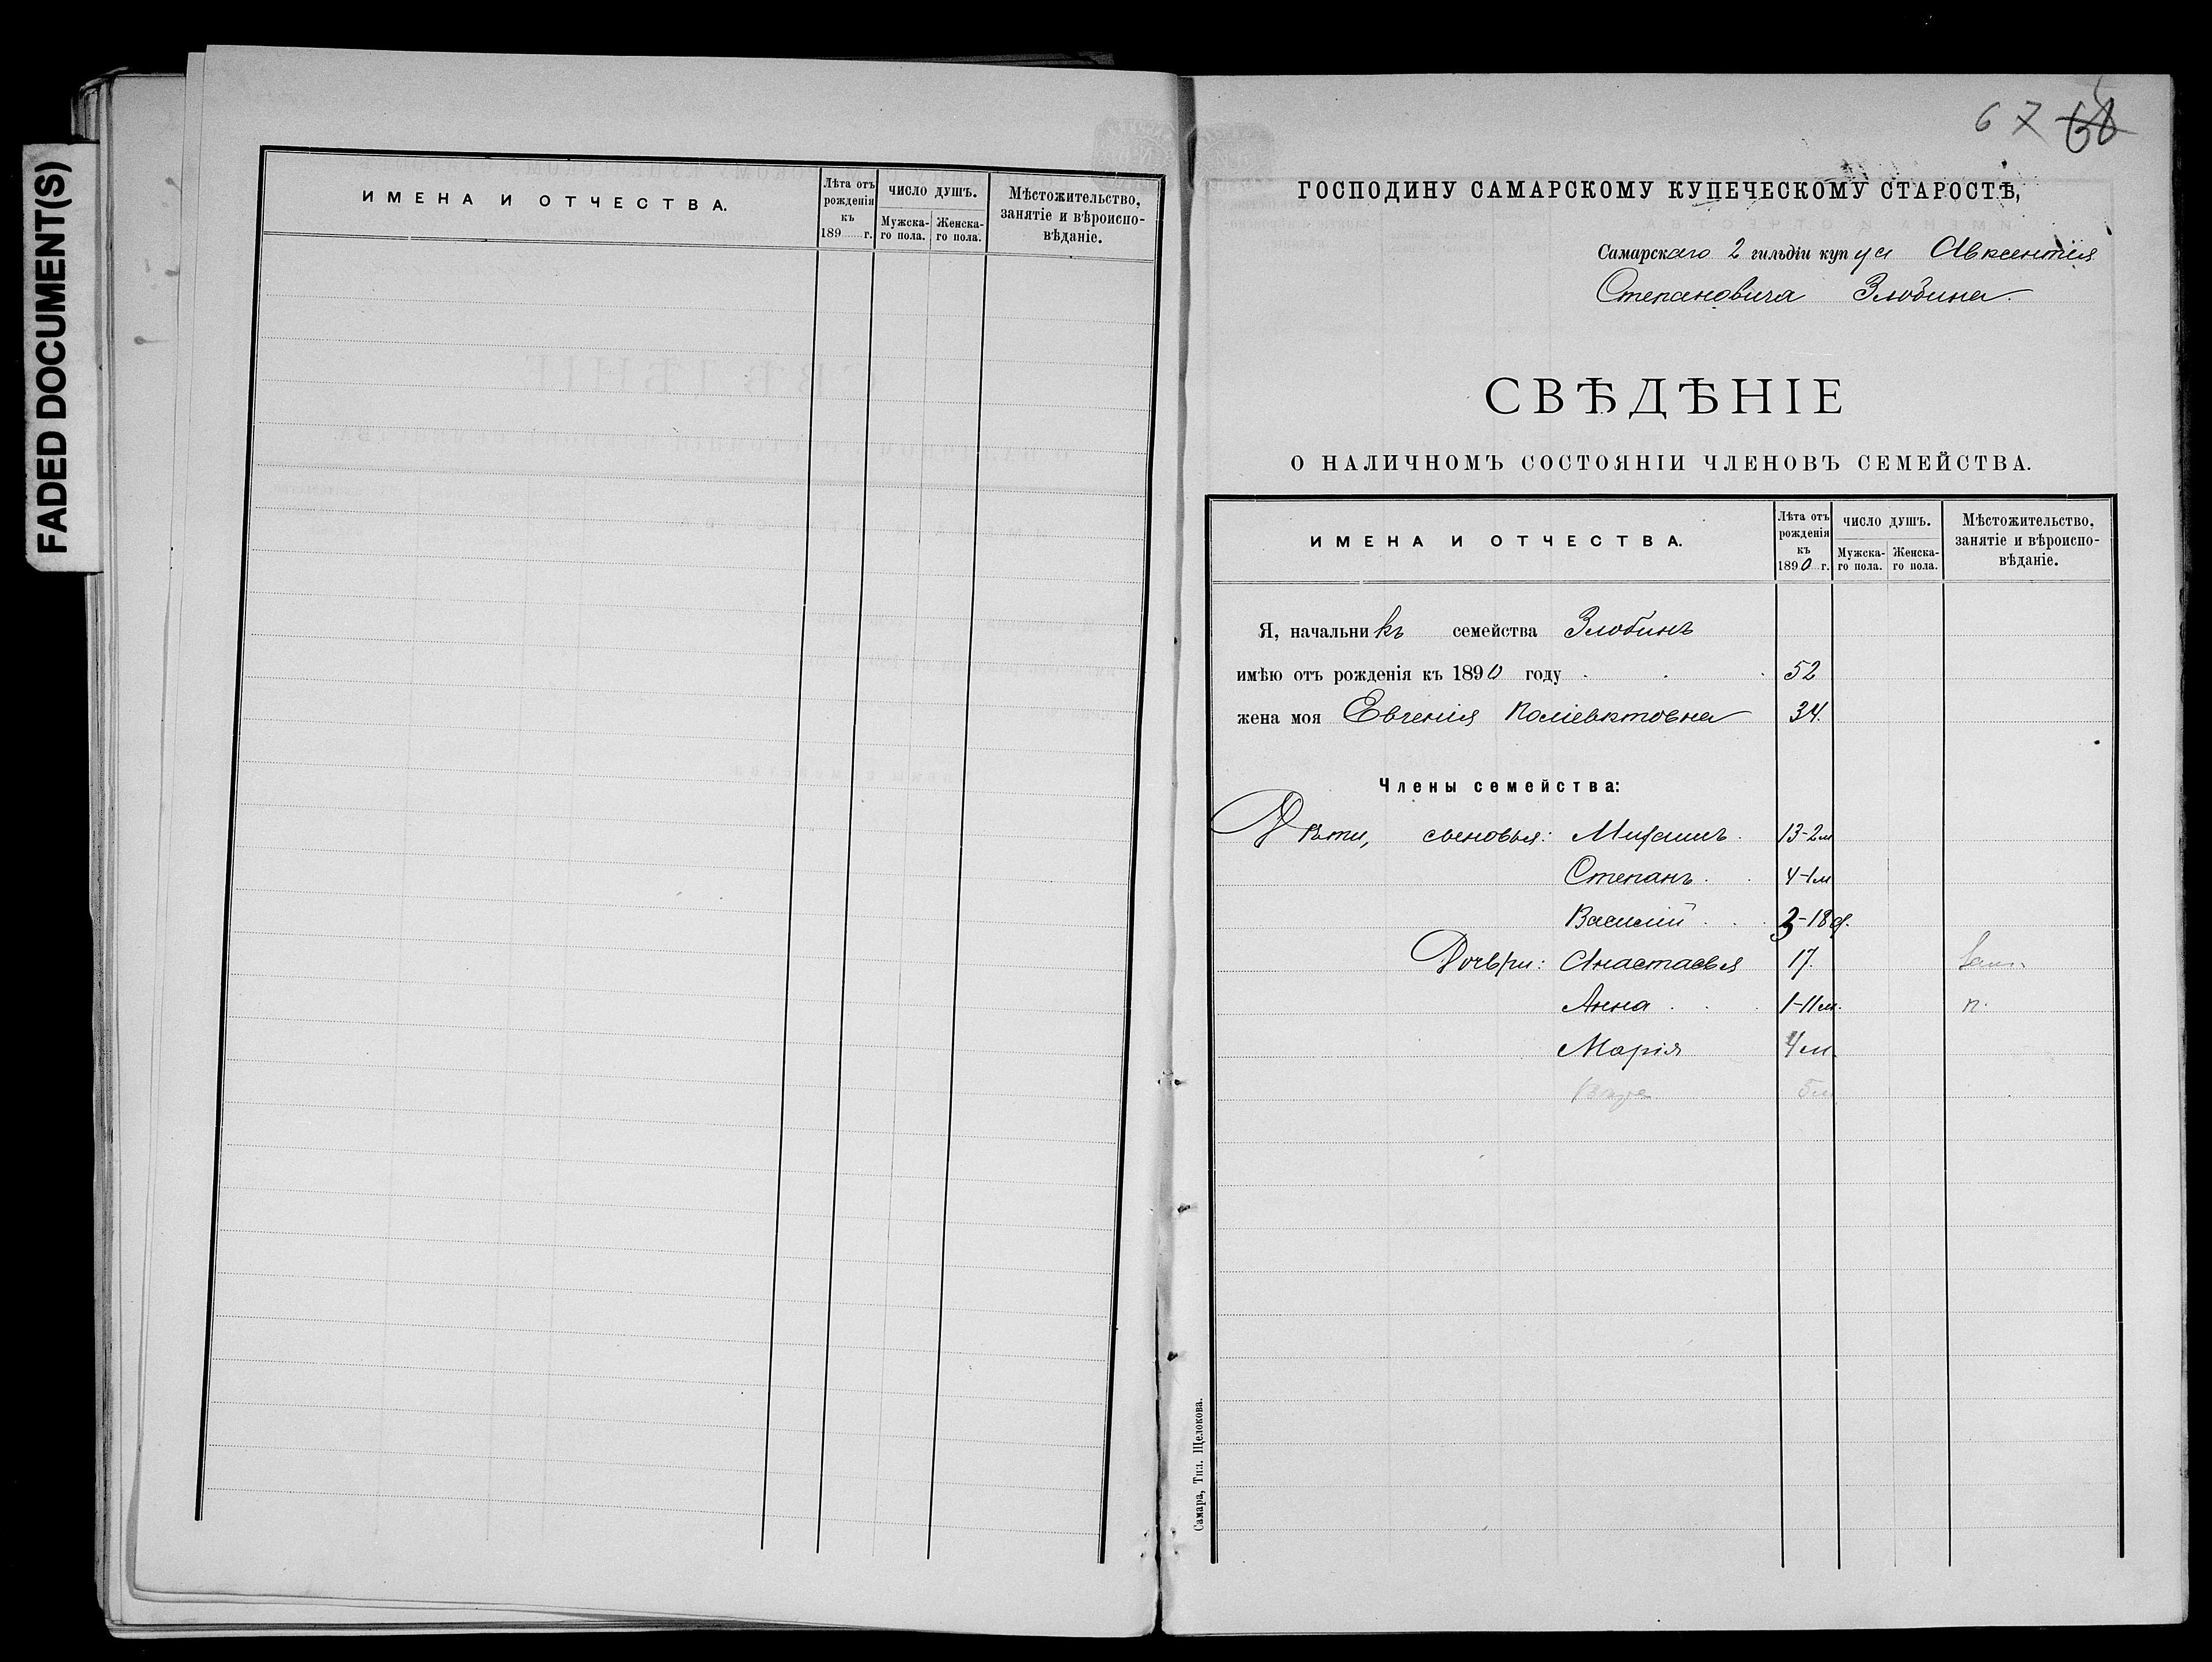 FADED DOCUMENT(S)
ИМЕНА И ОТЧЕСТВА.
Лѣта отъ рожденія къ 189 г.
ЧИСЛО ДУШЪ.
Мужска-го пола.
Женска-го пола.
Мѣстожительство, занятіе и вѣроиспо-вѣданіе.
67
ГОСПОДИНУ САМАРСКОМУ КУПЕЧЕСКОМУ СТАРОСТѢ,
Самарскаго 2 гильдіи купца Авксентія
Степановича Злобина.
СВѢДѢНІЕ
О НАЛИЧНОМЪ СОСТОЯНІИ ЧЛЕНОВЪ СЕМЕЙСТВА.
ИМЕНА И ОТЧЕСТВА.
Лѣта отъ рожденія къ 1890 г.
ЧИСЛО ДУШЪ.
Мужска-го пола.
Женска-го пола.
Мѣстожительство, занятіе и вѣроиспо-вѣданіе.
Я, начальникъ семейства Злобинъ
имѣю отъ рожденія къ 1890 году 52
жена моя Евгенія Поліевктовна 34.
Члены семейства:
Дѣти, сыновья: Михаилъ 13-2м
Степанъ 4-1м
Василій 3-18д.
Дочери: Анастасья 17.
Анна 1-11м. п.
Марія 4м.
5м
Самара, Тип. Щелокова.